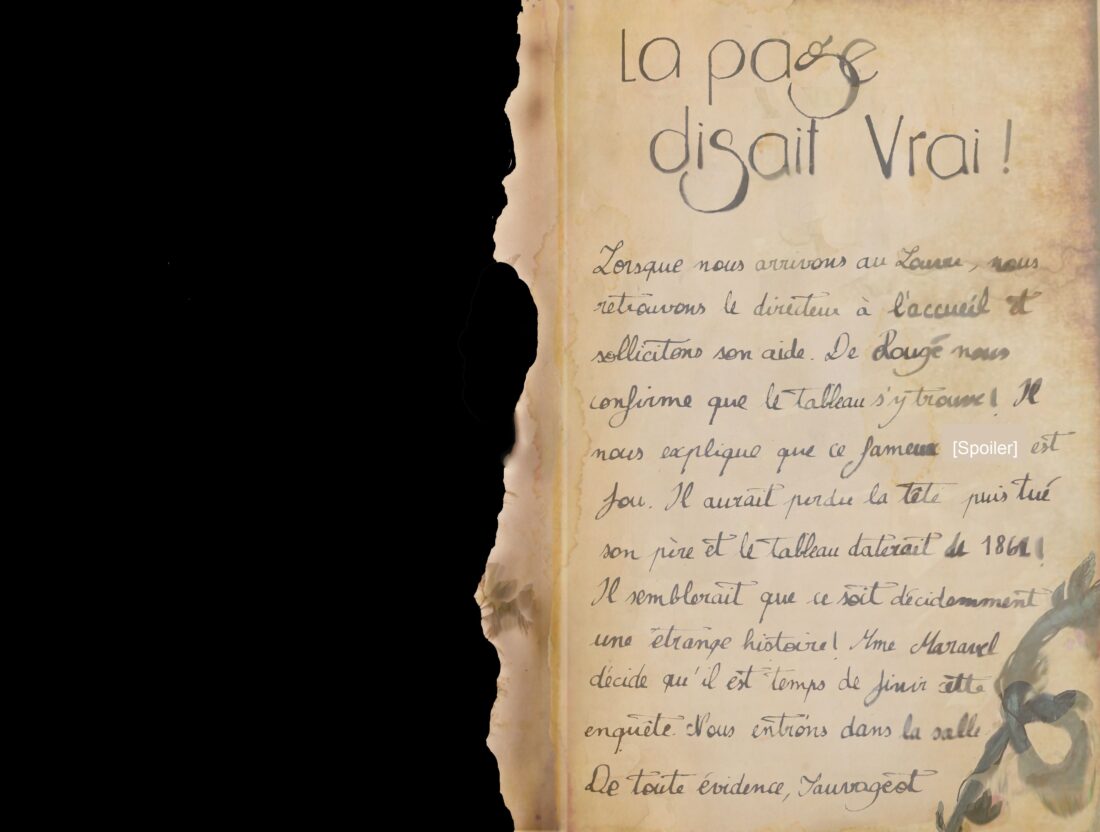 La page
disait Vrai !
Lorsque nous arrivons au Louvre, nous
retrouvons le directeur à l'accueil et
sollicitons son aide. De Rougé nous
confirme que le tableau s'y trouve! Il
nous explique que ce fameux [Spoiler] est
fou. Il aurait perdu la tête puis tué
son père et le tableau daterait de
Il semblerait que ce soit décidemment
une étrange histoire! Mme Maravel
décide qu'il est temps de finir cette
enquête. Nous entrons dans la salle
De toute évidence, Sauvageot